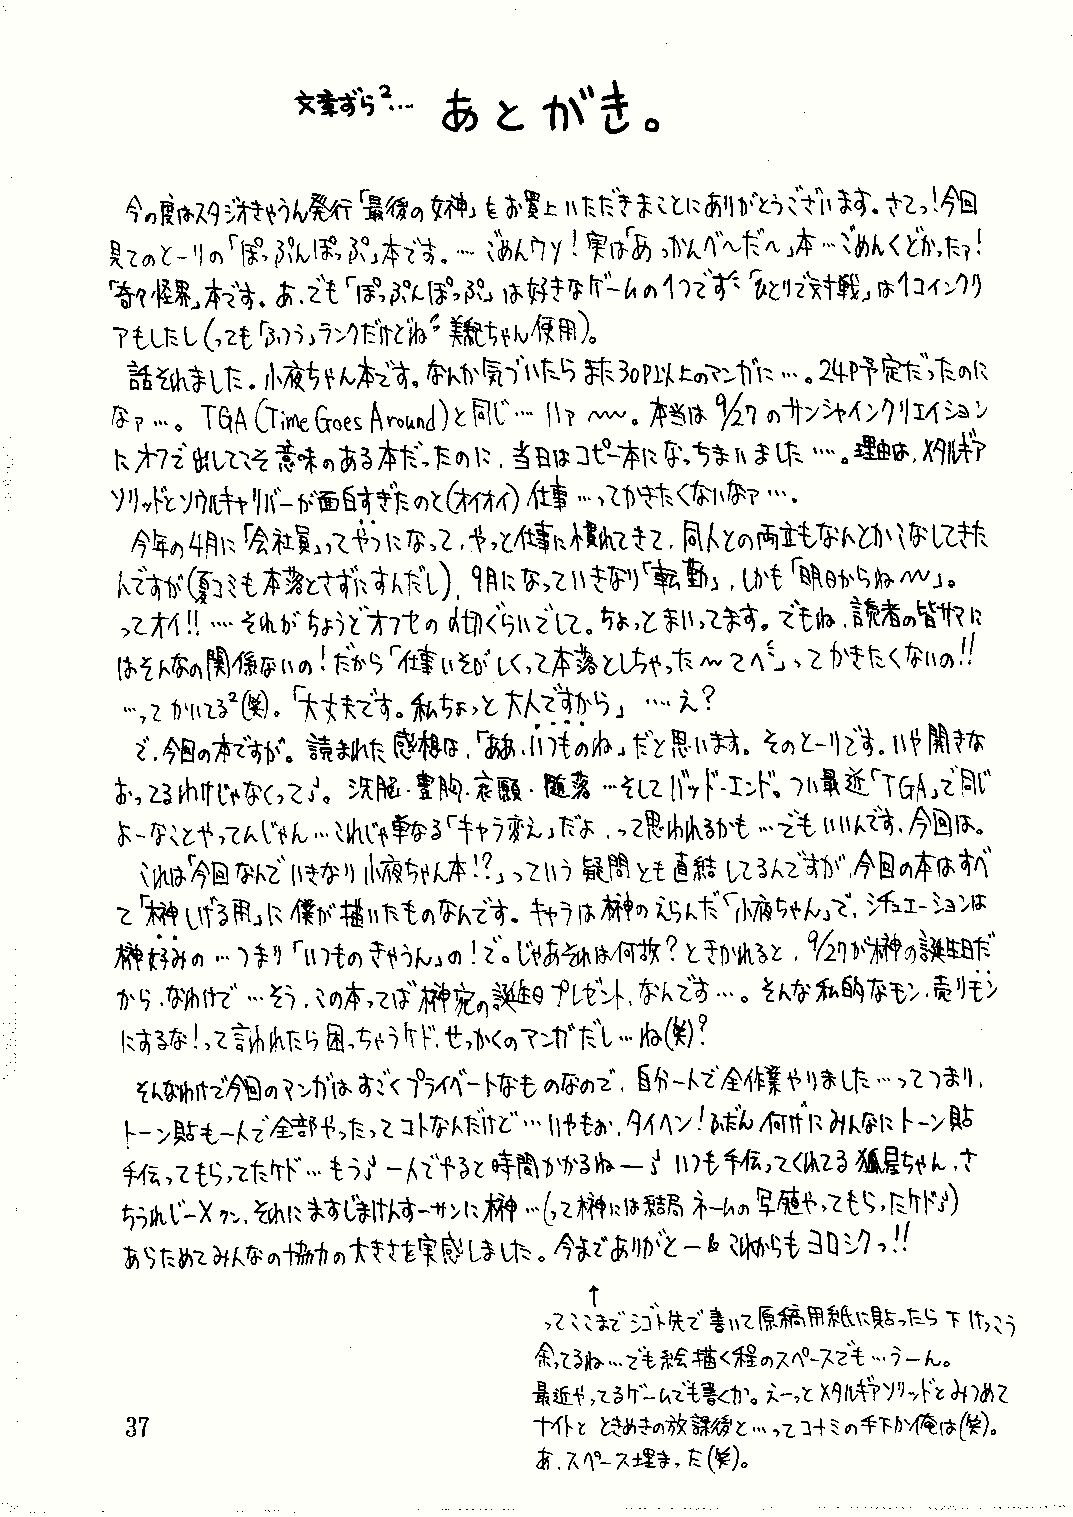 文章ずら²… あとがき。
今の度はスタジオきゃうん発行「最後の女神」をお買上いただきまことにありがとうございます。さてっ!今回
見てのとーりの「ぽっぷんぽっぷ」本です。…ごめんウソ!実は「あっかんべ〜だ〜」本…ごめんくどかったァ!
「奇々怪界」本です。あ、でも「ぽっぷんぽっぷ」は好きなゲームの1つです「ひとりで対戦」は1コインクリ
アもしたし(っても「ふつう」ランクだけどね 美貌ちゃん使用)。
話それました。小夜ちゃん本です。なんか気づいたらまた30P以上のマンガに…。24P予定だったのに
なァ…。TGA(Time Goes Around)と同じ…ハァ〜〜。本当は9/27のサンシャインクリエイション
にオフで出してこそ意味のある本だったのに、当日はコピー本になっちまいました…。理由は、メタルギア
ソリッドとソウルキャリバーが面白すぎたのと(オイオイ)仕事…ってかきたくないなァ…。
今年の4月に「会社員」ってやつになって、やっと仕事に慣れてきて、同人との両立もなんとかこなしてきた
んですが(夏コミも本落とさずにすんだし)、9月になっていきなり「転勤」、しかも「明日からね〜」。
ってオイ!!…それがちょうどオフセの〆切ぐらいでして。ちょっとまいってます。でもね、読者の皆サマに
はそんなの関係ないの!だから「仕事いそがしくって本落としちゃった〜てへ」ってかきたくないの!!
…ってかいてる²(笑)。「大丈夫です。私ちょっと大人ですから」…え?
で、今回の本ですが。読まれた感想は、「ああ、いつものね」だと思います。そのとーりです。いや開きな
おってるわけじゃなくって♪。洗脳・豊胸・哀願・堕落…そしてバッド・エンド。つい最近「TGA」で同じ
よーなことやってんじゃん…これじゃ単なる「キャラ変え」だよ、って思われるかも…でもいいんです、今回は。
これは「今回なんでいきなり小夜ちゃん本!?」っていう疑問とも直結してるんですが、今回の本はすべ
て「榊しげる用」に僕が描いたものなんです。キャラは榊のえらんだ「小夜ちゃん」で、シチュエーションは
榊好みの…つまり「いつものきゃうん」の!で。じゃあそれは何故?ときかれると、9/27が榊の誕生日だ
から、なわけで…そう、この本ってば榊宛の誕生日プレゼント、なんです…。そんな私的なモン、売りモン
にするな!って言われたら困っちゃうケド、せっかくのマンガだし…ね(笑)?
そんなわけで今回のマンガはすごくプライベートなものなので、自分一人で全作業やりました…ってつまり、
トーン貼も一人で全部やったってコトなんだけど…いやもお、タイヘン!ふだん何げにみんなにトーン貼
手伝ってもらってたケド…もう♪一人でやると時間かかるねー♪いつも手伝ってくれてる狐星ちゃん、さ
ちうれじーXクン、それにますじまけんすーサンに榊…(って榊には結局ネームの写植やってもらったケド♪)
あらためてみんなの協力の大きさを実感しました。今までありがとー&これからもヨロシクっ!!
↑
ってここまでシゴト先で書いて原稿用紙に貼ったら下けっこう
余ってるね…でも絵描く程のスペースでも…うーん。
最近やってるゲームでも書くか。えーっとメタルギアソリッドとみつめて
ナイトとときめきの放課後と…ってコナミの手下か俺は(笑)。
あ、スペース埋まった(笑)。
37